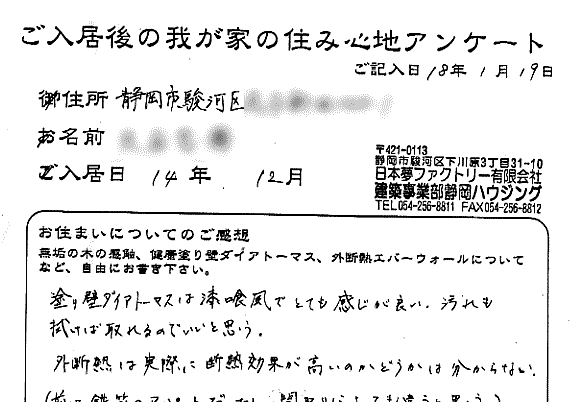 ご入居後の我が家の住み心地アンケート
ご記入日 18年 1月 19日
御住所 静岡市駿河区
お名前
ご入居日 14年 12月
〒421-0113
静岡市駿河区下川原3丁目31-10
日本夢ファクトリー有限会社
建築事業部静岡ハウジング
TEL054-256-8811 FAX054-256-8812
お住まいについてのご感想
無垢の木の感触、健康塗り壁ダイアトーマス、外断熱エバーウォールについて
など、自由にお書き下さい。
塗り壁ダイアトーマスは漆喰風でとても感じが良い。汚れも
拭けば取れるのでいいと思う。
外断熱は実際に断熱効果が高いのかどうかは分からない。